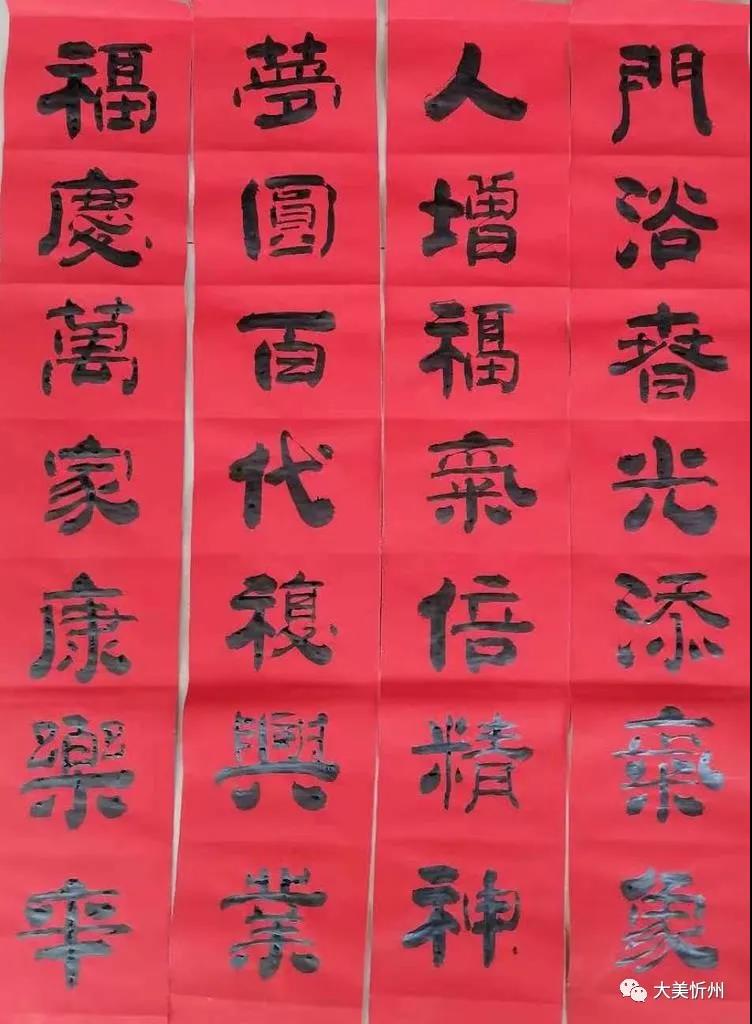 門浴春光添氣象
人增福氣倍精神
夢圓百代複興業
福慶萬家康樂年
大美忻州